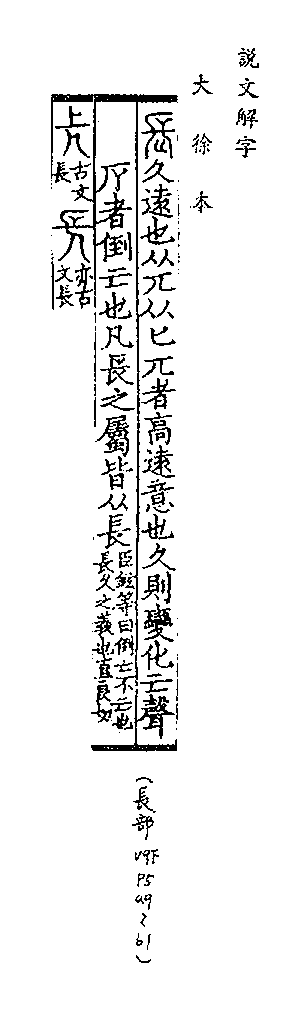 說文解字
大徐本
久遠也从兀从匕兀者高遠意也久則變化亾聲
𠂆者倒亾也凡長之屬皆从長臣鉉等曰倒亡不亡也長久之義也直良切
古文長 亦古文長
(長部 V9下 P5 a9 2 b1)